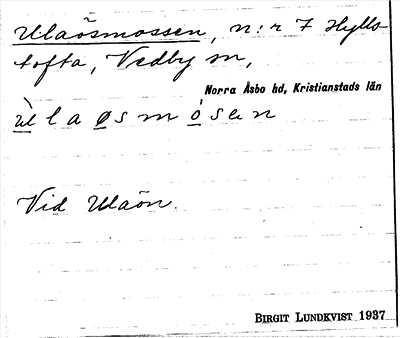 Ulaösmossen, n:r 7 Hylls-
tofta, Vedby sn,
Norra Åsbo hd, Kristianstads län
ùlaøsmósen
Vid Ulaön.
BIRGIT LUNDKVIST 1937